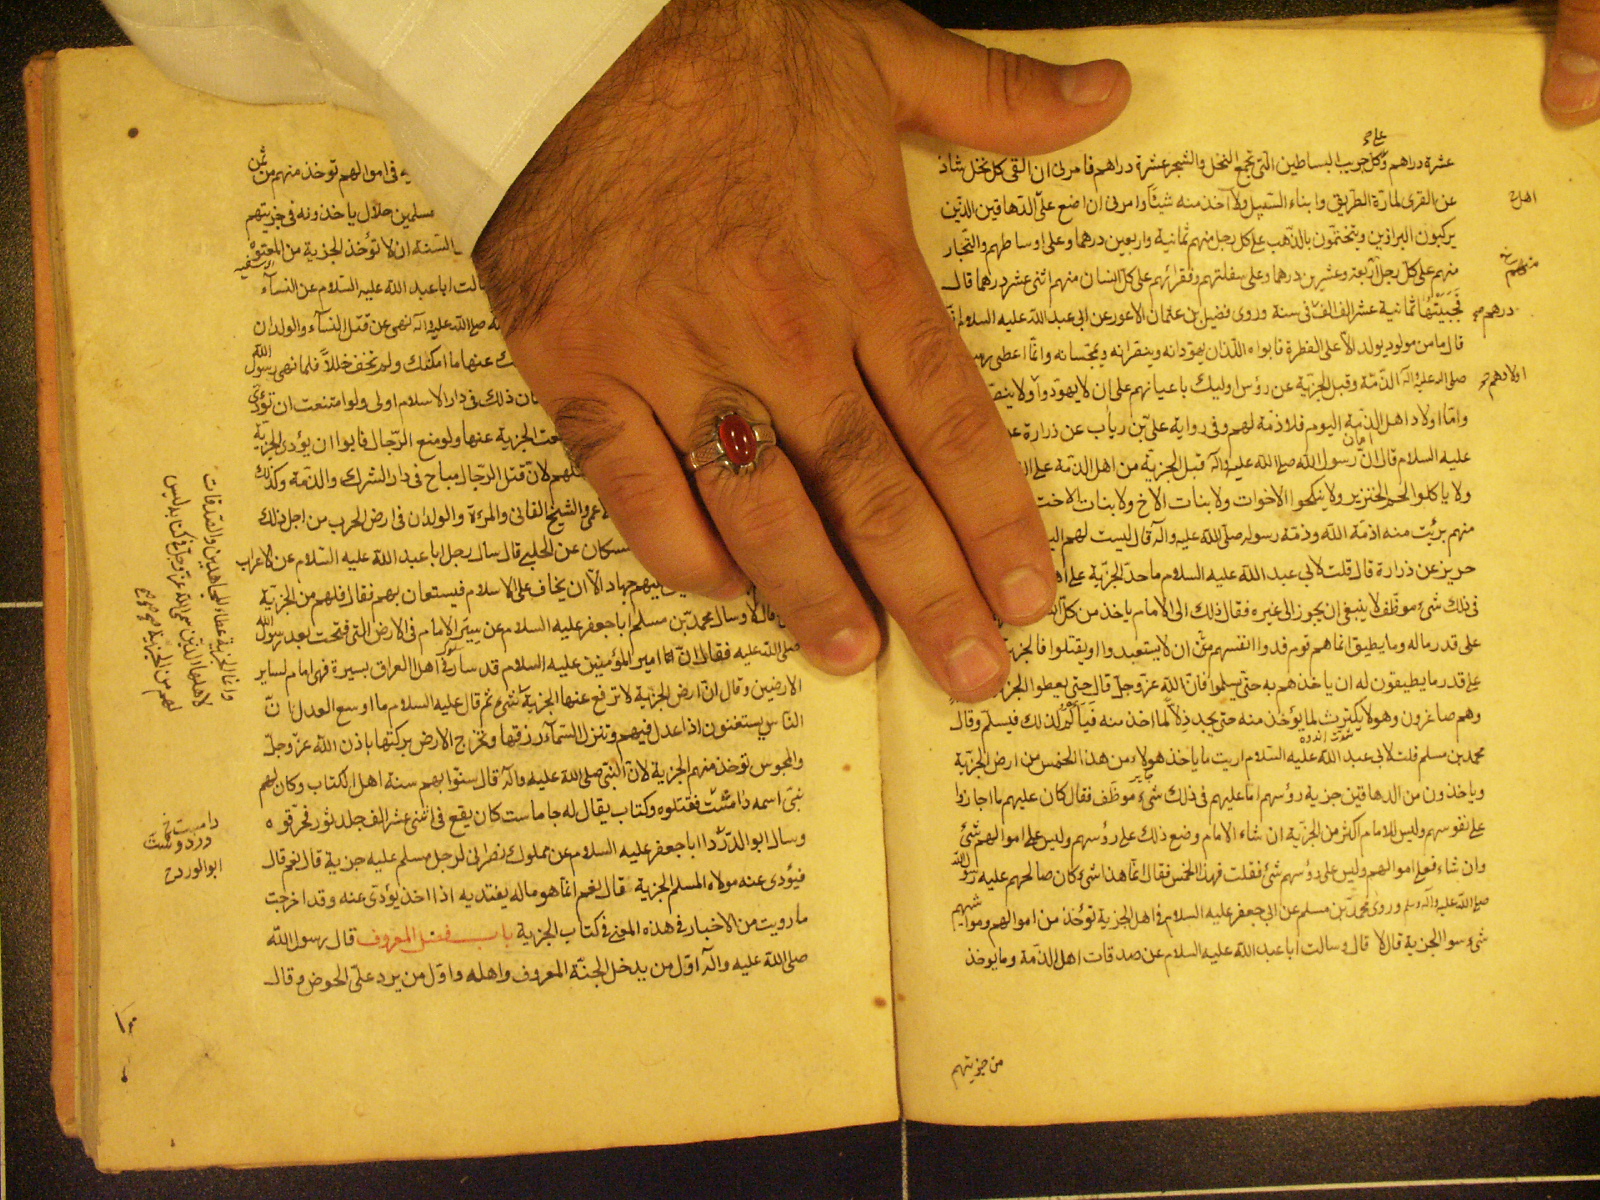 عشرة دراهم وكل جريب البساطين التى تجمع النخل والشجر عشرة دراهم فامرنى ان القى كل نخل شاذ
عن القرى لمارة الطريق وابناء السبيل ولا آخذ منه شيئا وامرنى ان اضع على الدهاقين الذين
يركبون البراذين ويتختمون بالذهب على كل رجل منهم ثمانية واربعين درهما وعلى اوساطهم والتجار
منهم على كل رجل اربعة وعشرين درهما وعلى سفلتهم وفقرائهم على كل انسان منهم اثنى عشر درهما قال
فجبيتها ثمانية عشر الف الف فى سنة وروى فضيل بن عثمان الاعور عن ابى عبد الله عليه السلام
قال ما من مولود يولد الا على الفطرة فابواه اللذان يهودانه وينصرانه ويمجسانه وانما اعطى
صلى الله عليه وآله الذمة وقبل الجزية عن رؤس اوليك باعيانهم على ان لا يهودوا ولا
واما اولاد اهل الذمة اليوم فلا ذمة لهم وفى رواية على بن رياب عن زرارة
عليه السلام قال ان رسول الله صلى الله عليه وآله قبل الجزية من اهل الذمة على
ولا ياكلوا لحم الخنزير ولا ينكحوا الاخوات ولا بنات الاخ ولا بنات الاخت
منهم برئت منه ذمة الله وذمة رسوله صلى الله عليه وآله قال ليست لهم
حريز عن زرارة قال قلت لابى عبد الله عليه السلام ما حد الجزية على
فى ذلك شىء موظف لا ينبغى ان يجوز الى غيره فقال ذلك الى الامام ياخذ من كل
على قدر ماله وما يطيق انما هم قوم فدوا انفسهم من ان لا يستعبدوا او يقتلوا فالجزية
على قدر ما يطيقون له ان ياخذهم به حتى يسلموا فان الله عز وجل قال حتى يعطوا
وهم صاغرون وهو لا يكترث لما يؤخذ منه حتى يجد ذلا لما اخذ منه فيألم لذلك فيسلم وقال
محمد بن مسلم قلت لابى عبد الله عليه السلام اريت ما ياخذ هولاء من هذا الخمس من ارض الجزية
وياخذون من الدهاقين جزية رؤسهم اما عليهم فى ذلك شىء موظف فقال كان عليهم ما اجازوا
على نفوسهم وليس للامام اكثر من الجزية ان شاء الامام وضع ذلك على رؤسهم وليس على اموالهم شئ
وان شاء فعلى اموالهم وليس على رؤسهم شئ فقلت فهذا الخمس فقال انما هذا شئ كان صالحهم عليه رسول الله
صلى الله عليه وآله وسلم وروى محمد بن مسلم عن ابى جعفر عليه السلام فى اهل الجزية تؤخذ من اموالهم ومواشيهم
شىء سوا الجزية قال لا قال وسالت ابا عبد الله عليه السلام عن صدقات اهل الذمة وما يوخذ
من جزيتهم
اهل
منهم
درهم
اولادهم
فى اموالهم توخذ منهم من ثمن
مسلمين حلال ياخذونه فى جزيتهم
السنة ان لا تؤخذ الجزية من المعتوه
ابا عبد الله عليه السلام عن النساء
صلى الله عليه وآله نهى عن قتل النساء والولدان
عنها ما امكنك ولم تخف خللا فلما نهى رسول الله
ذلك فى دار الاسلام اولى ولو امتنعت ان تؤدى
الجزية عنها ولو منع الرجال فابوا ان يؤدوا الجزية
لان قتل الرجال مباح فى دار الشرك والذمة وكذلك
والشيخ الفانى والمرءة والولدان فى ارض الحرب من اجل ذلك
مسكان عن الحلبى قال سال رجل ابا عبد الله عليه السلام عن الاعراب
جهاد الا ان يخاف على الاسلام فيستعان بهم فقال فلهم من الجزية
قال لا وسال محمد بن مسلم ابا جعفر عليه السلام عن سيرة الامام فى الارض التى فتحت بعد رسول الله
صلى الله عليه فقال ان امير المؤمنين عليه السلام قد سار فى اهل العراق بسيرة فهى امام لساير
الارضين وقال ان ارض الجزية لا ترفع عنها الجزية شىء ثم قال عليه السلام ما اوسع العدل ان
الناس يستغنون اذا عدل فيهم وتنزل السماء رزقها وتخرج الارض بركتها باذن الله عز وجل
والمجوس توخذ منهم الجزية لان النبى صلى الله عليه وآله قال سنوا بهم سنة اهل الكتاب وكان لهم
نبى اسمه دامست فقتلوه وكتاب يقال له جاماست كان يقع فى اثنى عشر الف جلد ثور فحرقوه
وسال ابو الدرداء ابا جعفر عليه السلام عن مملوك نصرانى لرجل مسلم عليه جزية قال نعم قال
فيؤدى عنه مولاه المسلم الجزية قال نعم انما هو ماله يفتديه اذا اخذ يؤدى عنه وقد اخرجت
ما رويت من الاخبار فى هذا المعنى فى كتاب الجزية باب فضل المعروف قال رسول الله
صلى الله عليه وآله اول من يدخل الجنة المعروف واهله واول من يرد على الحوض وقال
وانما الجزية عطاء المجاهدين والصدقات
لاهلها الذين سمى الله عز وجل فى كتابه ليس
لهم من الجزية شىء
ابو الورد